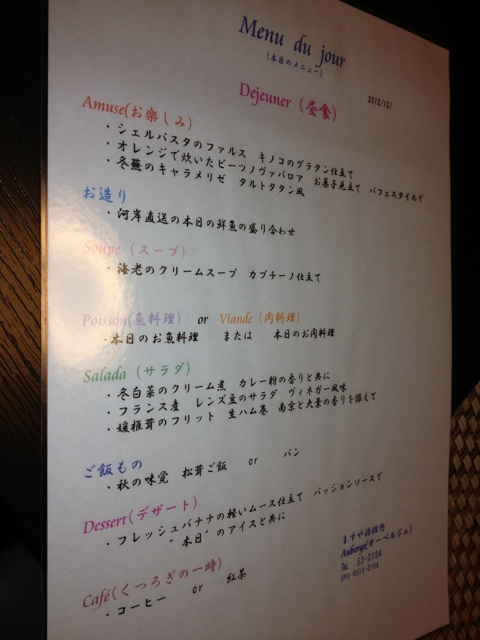 Menu du jour
(本日のメニュー)
Dejeuner (昼食)
2012/12/
Amuse(お楽しみ)
・シェルパスタのファルス キノコのグラタン仕立て
・オレンジで炊いたビーツノヴァバロア お菓子見立て パフェスタイルで
・冬蕪のキャラメリゼ タルトタタン風
お造り
・河岸直送の本日の鮮魚の盛り合わせ
Soupe (スープ)
・海老のクリームスープ カプチーノ仕立て
Poisson(魚料理) or Viande (肉料理)
・本日のお魚料理 または 本日のお肉料理
Salada (サラダ)
・冬白菜のクリーム煮 カレー粉の香りと共に
・フランス産 レンズ豆のサラダ ヴィネガー風味
・媛椎茸のフリット 生ハム巻 南京と大葉の香りを添えて
ご飯もの
・秋の味覚 松茸ご飯 or パン
Dessert(デザート)
・フレッシュバナナの軽いムース仕立て パッションソースで
"本日"のアイスと共に
Café(くつろぎの一時)
・コーヒー or 紅茶
ますや旅館内
Auberge(オーベルジュ)
℡ 53-2104